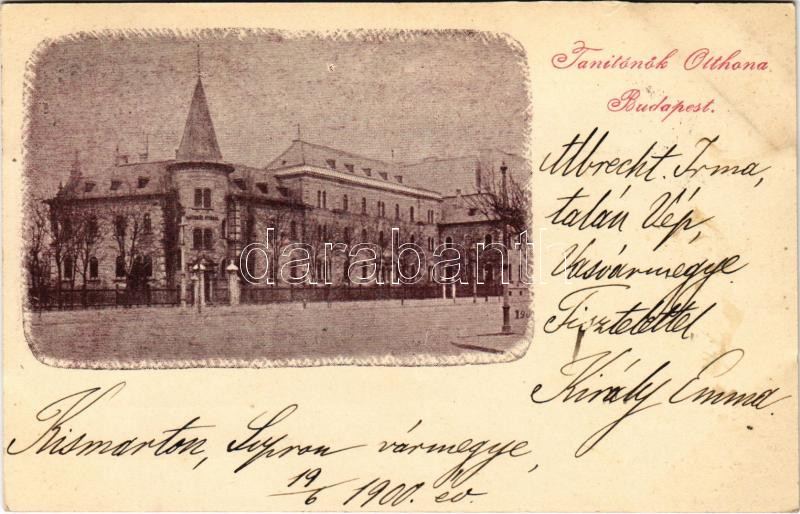 Tanitónők Otthona
Budapest.
Albrecht Irma,
talán Vép,
Vasvármegye
Tisztelettel
Király Emma.
darabanth
Kismarton, Sopron vármegye,
19/6 1900. év.